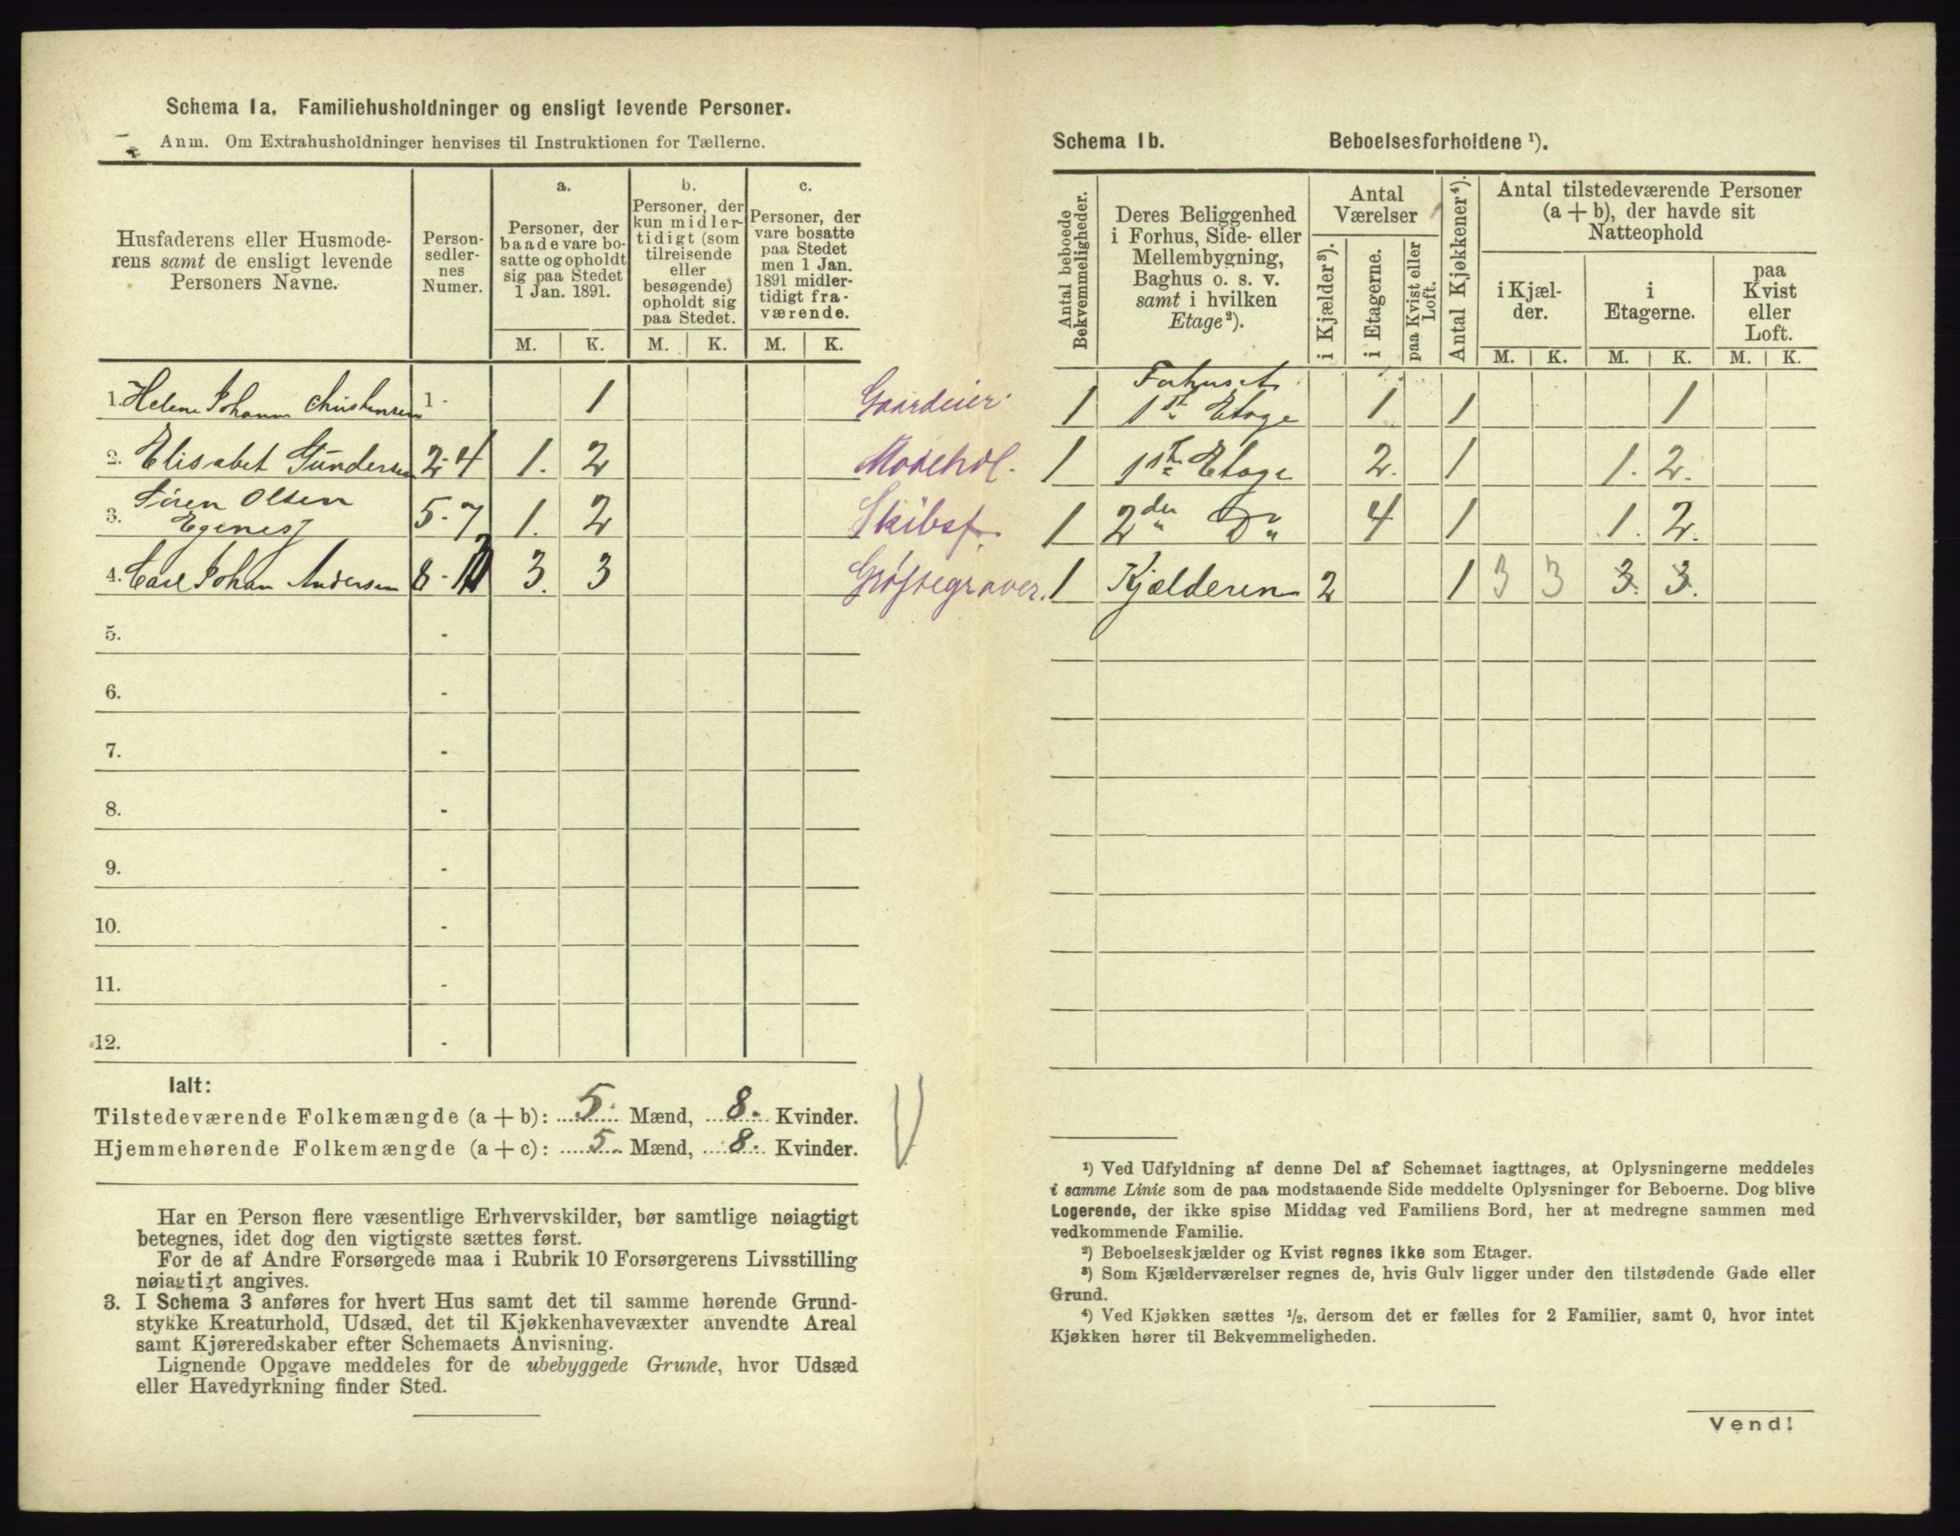 Schema 1a. Familiehusholdninger og ensligt levende Personer.
Anm. Om Extrahusholdninger henvises til Instruktionen for Tællerne.
Husfaderens eller Husmode-
rens samt de ensligt levende
Personers Navne.
Person-
sedler-
nes
Numer.
a.
Personer, der
baade vare bo-
satte og opholdt
sig paa Stedet
1 Jan. 1891.
b.
Personer, der
kun midler-
tidigt (som
tilreisende
eller
besøgende)
opholdt sig
paa Stedet.
c.
Personer, der
vare bosatte
paa Stedet
men 1 Jan.
1891 midler-
tidigt fra-
værende.
M. K. M. K. M. K.
1. Helene Johanne Christensen 1 - 1 Gaardeier
2. Elisabet Gundersen 2-4 1. 2 Modehdl.
3. Søren Olsen
Egenes 5-7 1. 2 Skibsf.
4. Carl Johan Andersen 8- 3. 3 Grøftegraver.
5. -
6. -
7. -
8. -
9. -
10. -
11. -
12. -
Ialt:
Tilstedeværende Folkemængde (a + b): 5 Mænd, 8. Kvinder.
Hjemmehørende Folkemængde (a + c): 5. Mænd, 8. Kvinder.
Har en Person flere væsentlige Erhvervskilder, bør samtlige nøiagtigt
betegnes, idet dog den vigtigste sættes først.
For de af Andre Forsørgede maa i Rubrik 10 Forsørgerens Livsstilling
nøiagtigt angives.
3. I Schema 3 anføres for hvert Hus samt det til samme hørende Grund-
stykke Kreaturhold, Udsæd, det til Kjøkkenhavevæxter anvendte Areal
samt Kjøreredskaber efter Schemaets Anvisning.
Lignende Opgave meddeles for de ubebyggede Grunde, hvor Udsæd
eller Havedyrkning finder Sted.
Schema 1b. Beboelsesforholdene ¹).
Antal beboede
Bekvemmeligheder.
Deres Beliggenhed
i Forhus, Side- eller
Mellembygning,
Baghus o. s. v.
samt i hvilken
Etage²).
Antal
Værelser
i Kjælder³).
i Etagerne.
paa Kvist eller
Loft.
Antal Kjøkkener⁴).
Antal tilstedeværende Personer
(a + b), der havde sit
Natteophold
i Kjæl-
der.
i
Etagerne.
paa
Kvist
eller
Loft.
M. K. M. K. M. K.
Forhuset
1 1ste Etage 1 1 1
1 1ste Etage 2. 1 1. 2.
1 2den Do 4 1 1. 2.
1 Kjælderen 2 1 3 3 3. 3.
¹) Ved Udfyldning af denne Del af Schemaet iagttages, at Oplysningerne meddeles
i samme Linie som de paa modstaaende Side meddelte Oplysninger for Beboerne. Dog blive
Logerende, der ikke spise Middag ved Familiens Bord, her at medregne sammen med
vedkommende Familie.
²) Beboelseskjælder og Kvist regnes ikke som Etager.
³) Som Kjælderværelser regnes de, hvis Gulv ligger under den tilstødende Gade eller
Grund.
⁴) Ved Kjøkken sættes ½, dersom det er fælles for 2 Familier, samt 0, hvor intet
Kjøkken hører til Bekvemmeligheden.
Vend!